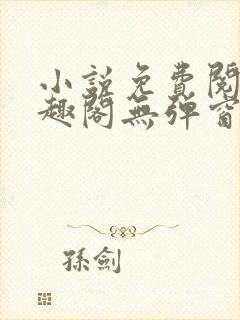 小說免費閱
趣閣無彈窗
孫劍